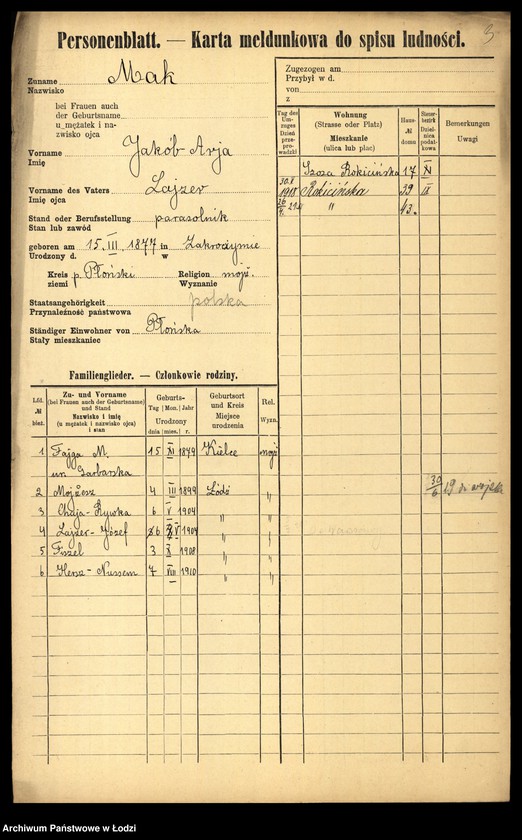 3
Personenblatt. — Karta meldunkowa do spisu ludności.
Zuname Mak
Nazwisko
bei Frauen auch
der Geburtsname
u mężatek i na-
zwisko ojca
Vorname Jakób-Arja
Imię
Vorname des Vaters Lajzer
Imię ojca
Stand oder Berufsstellung parasolnik
Stan lub zawód
geboren am 15. III. 1877 in Zakroczymie
Urodzony d. w
Kreis p. Płoński Religion mojż.
ziemi Wyznanie
Staatsangehörigkeit polska
Przynależność państwowa
Ständiger Einwohner von Płońska
Stały mieszkaniec
Zugezogen am
Przybył w d.
von
z
Tag des Um-
zuges
Dzień
prze-
prowadzki
Wohnung
(Strasse oder Platz)
Mieszkanie
(ulica lub plac)
Haus-
№
domu
Steuer-
bezirk
Dziel-
nica
podat-
kowa
Bemerkungen
Uwagi
Szosa Rokicińska 17 XI
1918 Rokicińska 39 IX
" 43.
Familienglieder. — Członkowie rodziny.
Lfd.
№
bież.
Zu- und Vorname
(bei Frauen auch der Geburtsname)
und Stand
Nazwisko i imię
(u mężatek i nazwisko ojca)
i stan
Geburts-
Tag Mon. Jahr
Urodzony
dnia mies. r.
Geburtsort
und Kreis
Miejsce
urodzenia
Rel.
Wyzn.
1 Fajga M. 15 XI 1879 Kielce mojż
un Garbarska
2 Mojżesz 4 III 1899 Łódź "
30/6 19 do wojska
3 Chaja-Rywka 6 V 1904 " "
4 Lajzer-Józef 6 V 1907 " "
5 Fiszel 3 X 1908 " "
6 Hersz-Nussem 7 VIII 1910 " "
Archiwum Państwowe w Łodzi